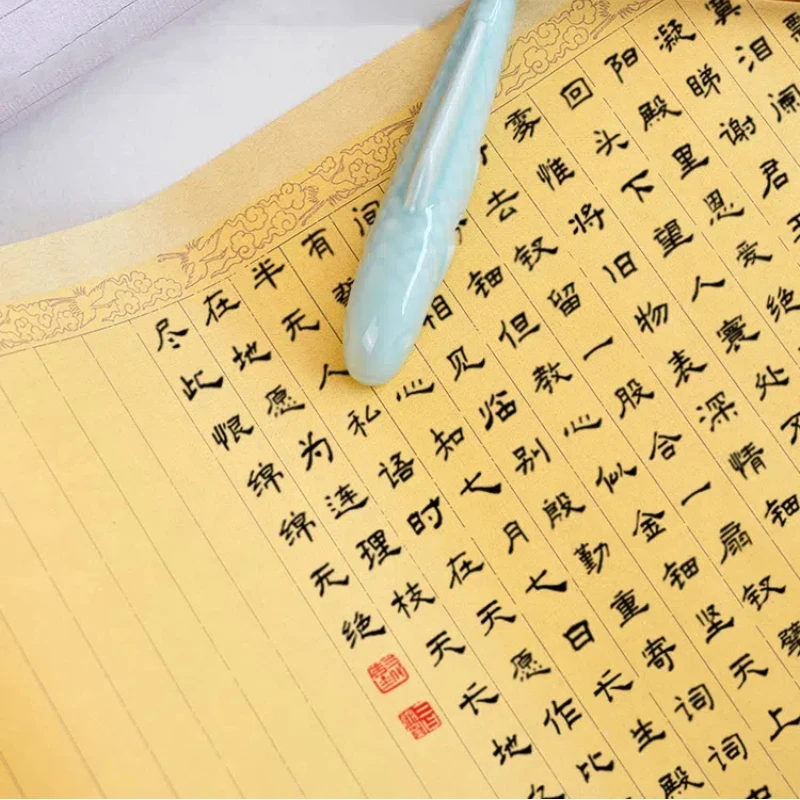 寞泪阑
凝睇谢君王
阳殿里恩爱绝
回头下望人寰处不
雾惟将旧物表深情钿
去钗留一股合一扇钗擘
钿但教心似金钿坚天上
间相见临别殷勤重寄词词中
有心知七月七日长生殿
半无人私语时在天愿作比
在地愿为连理枝天长地久
尽此恨绵绵无绝